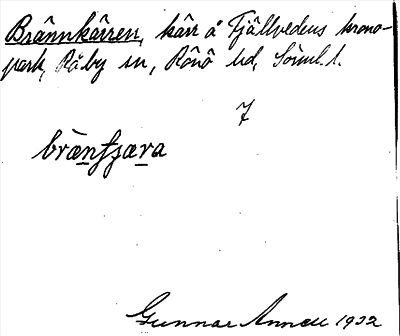 Brännkärren, kärr å Fjällvedens krono-
park, Råby sn, Rönö hd, Sörml. l.
7
brænʃæra
Gunnar Annell 1932